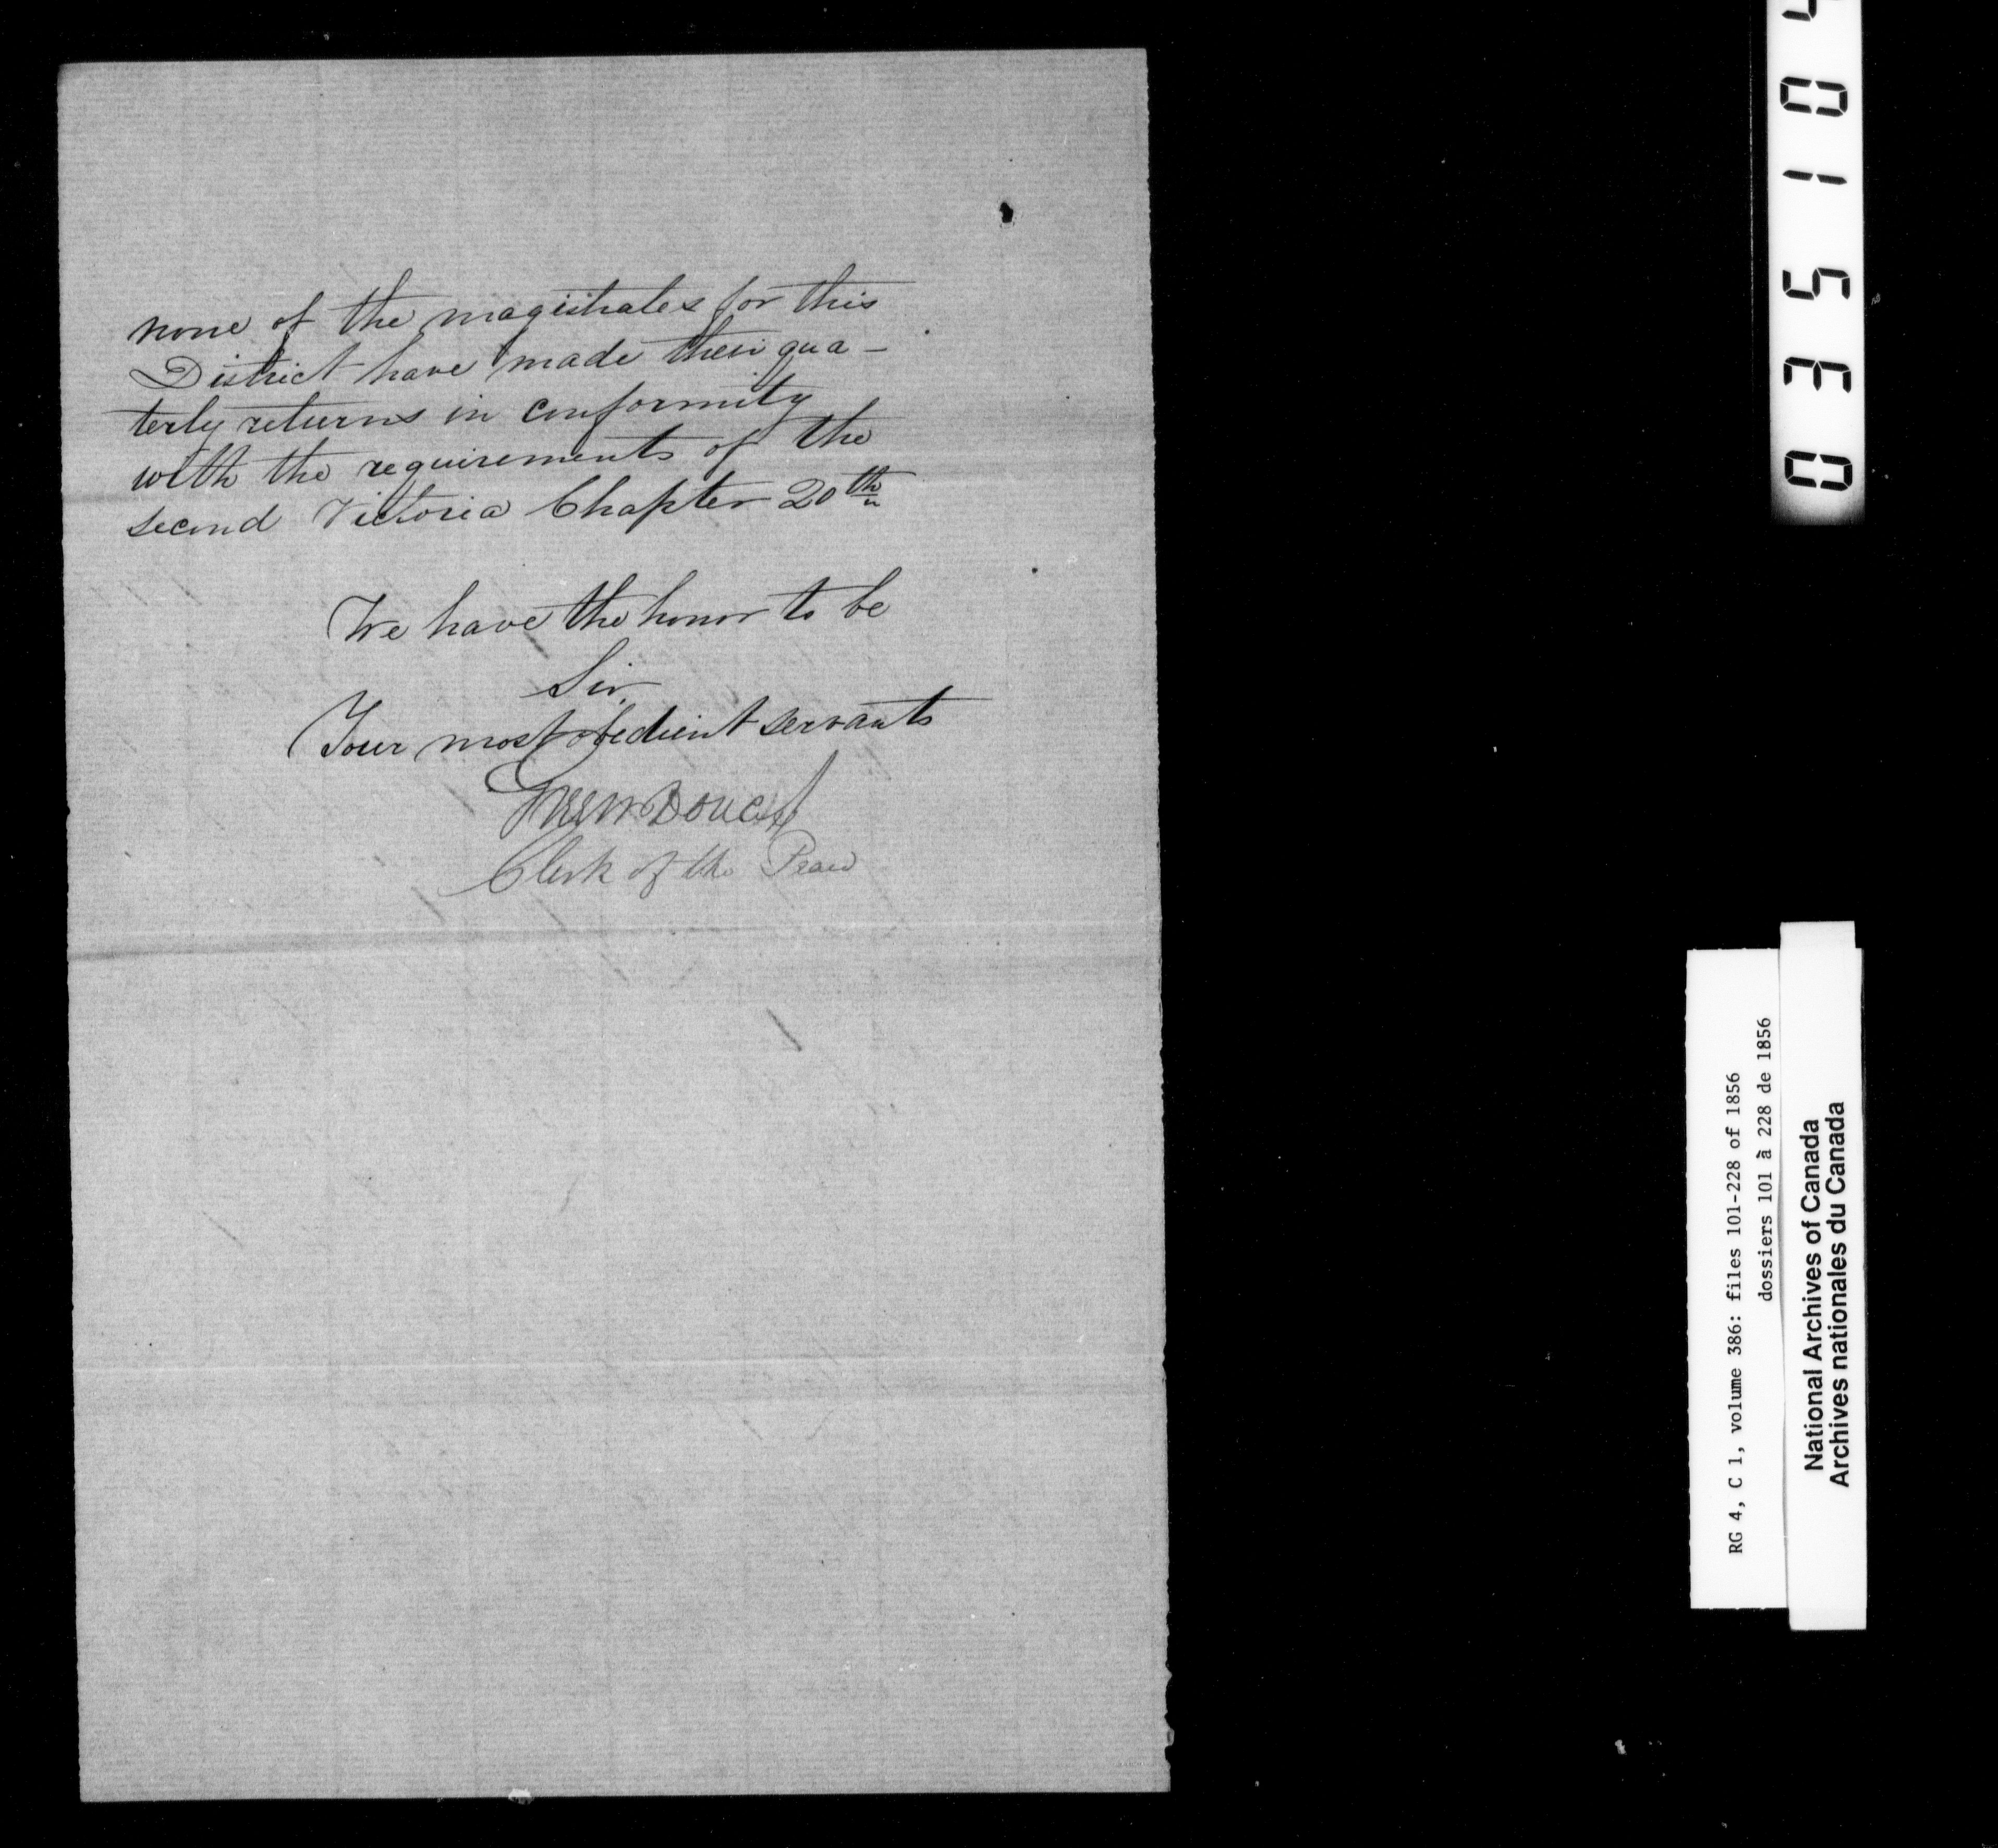 none of the magistrates for this
District have made their qua-
terly returns in conformity
with the requirements of the
second Victoria Chapter 20th
We have the honor to be
Sir
Your most obedient servants
Clerk of the Peace
0 3 5 1 0 4
RG 4, C 1, volume 386: files 101-228 of 1856
dossiers 101 à 228 de 1856
National Archives of Canada
Archives nationales du Canada